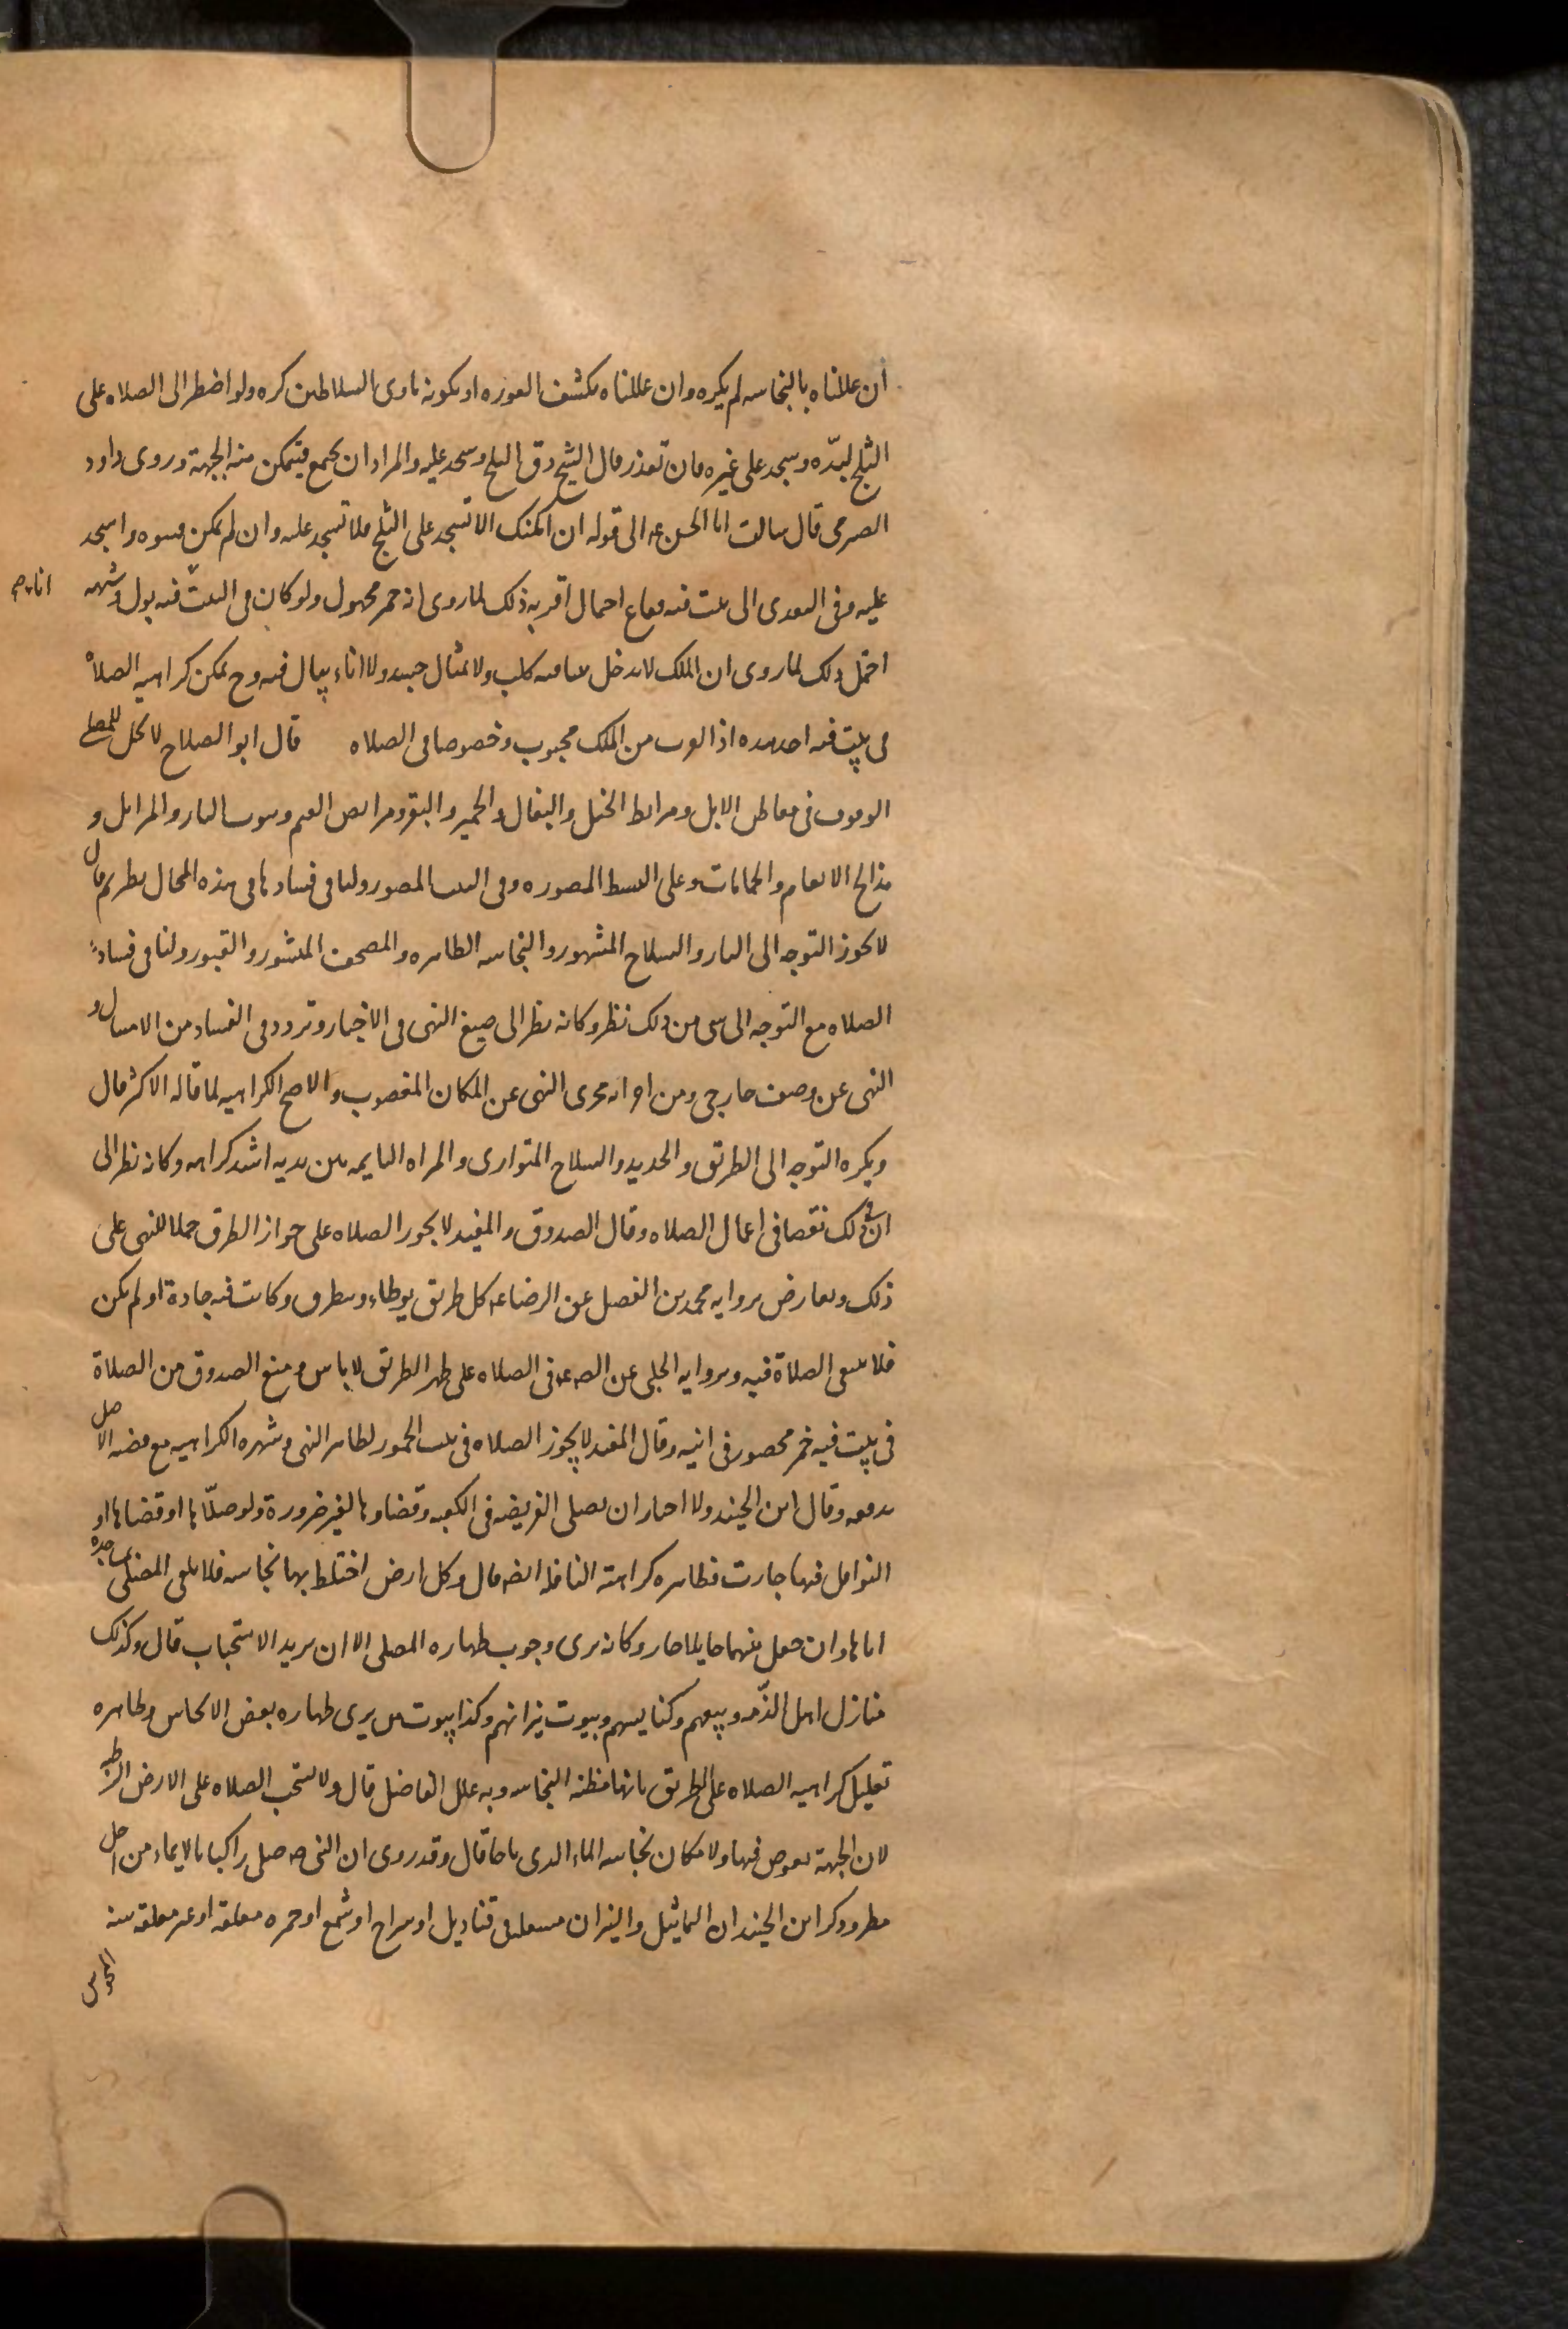 ان عللناه بالنجاسه لم يكره وان عللناه بكشف العوره او بكونه ماوى السلاطين كره ولو اضطر الى الصلاه على
الثلج لبّده وسجد على غيره فان تعذر قال الشيخ دق الثلج وسجد عليه والمراد ان يجمع فيتمكن منه الجبهة وروى داود
الصرمى قال سالت ابا الحسن عه الى قوله ان امكنك الا تسجد على الثلج فلا تسجد عليه وان لم يمكن فسوه واسجد
عليه وفى التعدى الى بيت فيه فقاع احتمال اقربه ذلك لما روى انه خمر مجهول ولو كان فى البيت فيه بول وشبهه
احتمل ذلك لما روى ان الملك لا يدخل بيتا فيه كلب ولا تمثال جسد ولا اناء يبال فيه وح يمكن كراهيه الصلاة
فى بيت فيه احد هذه اذ القرب من الملك محبوب وخصوصا فى الصلاه قال ابو الصلاح لا يحل للمصلى
الوقوف فى معاطن الابل ومرابط الخيل والبغال والحمير والبقر ومرابض الغنم وبيوت النار والمزابل و
مذابح الانعام والحمامات وعلى البسط المصوره وفى البيت المصور ولنا فى فسادها فى هذه المحال نظر ثم قال
لا يجوز التوجه الى النار والسلاح المشهور والنجاسه الظاهره والمصحف المنشور والقبور ولنا فى فساد
الصلاه مع التوجه الى شى من ذلك نظر وكانه نظر الى صيغ النهى فى الاخبار وتردد فى الفساد من الامتثال و
النهى عن وصف خارجى ومن اجرائه مجرى النهى عن المكان المغصوب والاصح الكراهيه لما قاله الاكثر قال
ويكره التوجه الى الطريق والحديد والسلاح المتوارى والمراه النايمه بين يديه اشد كراهه وكانه نظر الى
ان فى ذلك نقصا فى اعمال الصلاه وقال الصدوق والمفيد لا يجوز الصلاه على جواز الطرق حملا للنهى على
ذلك ويعارض بروايه محمد بن الفضل عن الرضا عه كل طريق يوطاء ويتطرق وكانت فيه جادة او لم يكن
فلا ينبغى الصلاة فيه وبروايه الحلبى عن الص عه فى الصلاه على ظهر الطريق لا باس ومنع الصدوق من الصلاة
فى بيت فيه خمر محصور فى انيه وقال المفيد لا يجوز الصلاه فى بيت الخمور لظاهر النهى وشهره الكراهيه مع قضيه الاصل
يدفعه وقال ابن الجنيد ولا اختار ان يصلى الفريضه فى الكعبه وقضاوها لغير ضرورة ولو صلّاها او قضاها او
النوافل فيها جازت فظاهره كراهة النافله ايضا قال وكل ارض اختلط بها نجاسه فلا يلقى المصلى بساجده
اياها وان جعل بينهما حايلا جاز وكانه يرى وجوب طهاره المصلى الا ان يريد الاستحباب قال وكذلك
منازل اهل الذّمه وبيعهم وكنايسهم وبيوت نيرانهم وكذا بيوت من يرى طهاره بعض الانجاس وظاهره
تعليل كراهيه الصلاه على الطريق بانها مظنه النجاسه وبه علل الفاضل قال ولا يستحب الصلاه على الارض الرطبه
لان الجبهة يغوص فيها ولا مكان نجاسه الماء الذى ماجها قال وقد روى ان النبى صه صلى راكبا بالايماء من اجل
مطر وذكر ابن الجنيد ان التماثيل والنيران مشعله فى قناديل او سراج او شمع او جمره معلقه او غير معلقه سنه
المجوس